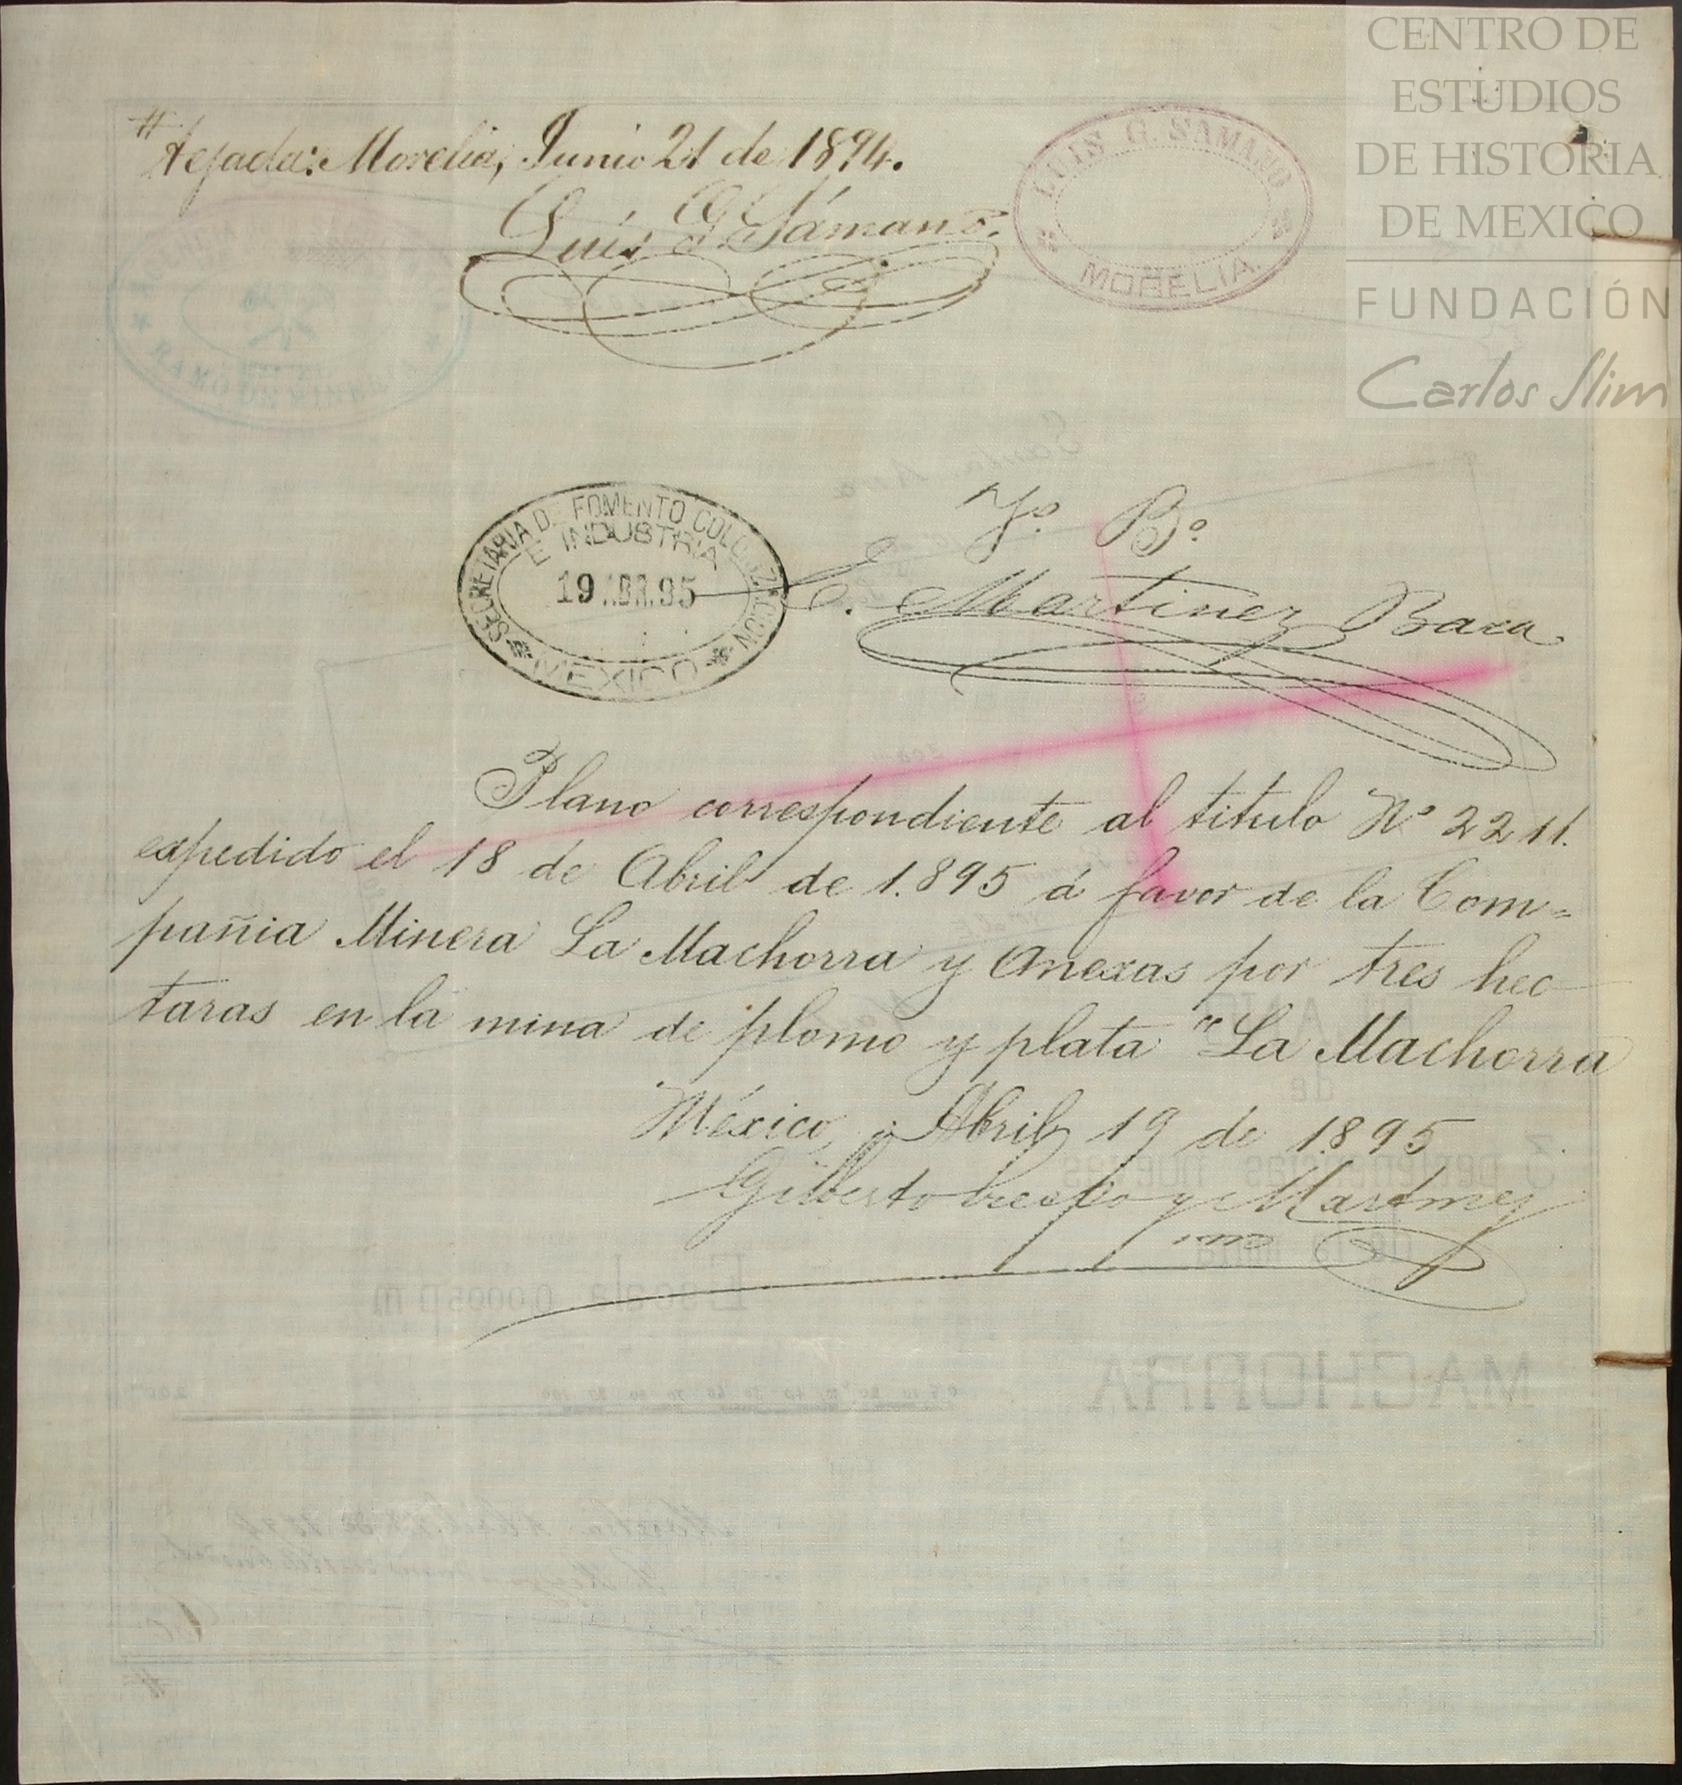 CENTRO DE
ESTUDIOS
DE HISTORIA
DE MEXICO
FUNDACIÓN
Carlos Slim
Morelia, Junio 21 de 1894.
Luis G. Sámano.
LUIS G. SAMANO
MORELIA.
RAMO DE MINERIA
SECRETARIA DE FOMENTO COLONIZACION
E INDUSTRIA
19 ABR. 95
MEXICO
Vo. Bo.
E. Martinez Baca
Plano correspondiente al titulo No 2211.
expedido el 18 de Abril de 1.895 á favor de la Com=
pañia Minera La Machorra y Anexas por tres hec
taras en la mina de plomo y plata "La Machorra
México, Abril 19 de 1895
Gilberto Crespo y Martinez
Escala 0,0005 p m
MACHORRA